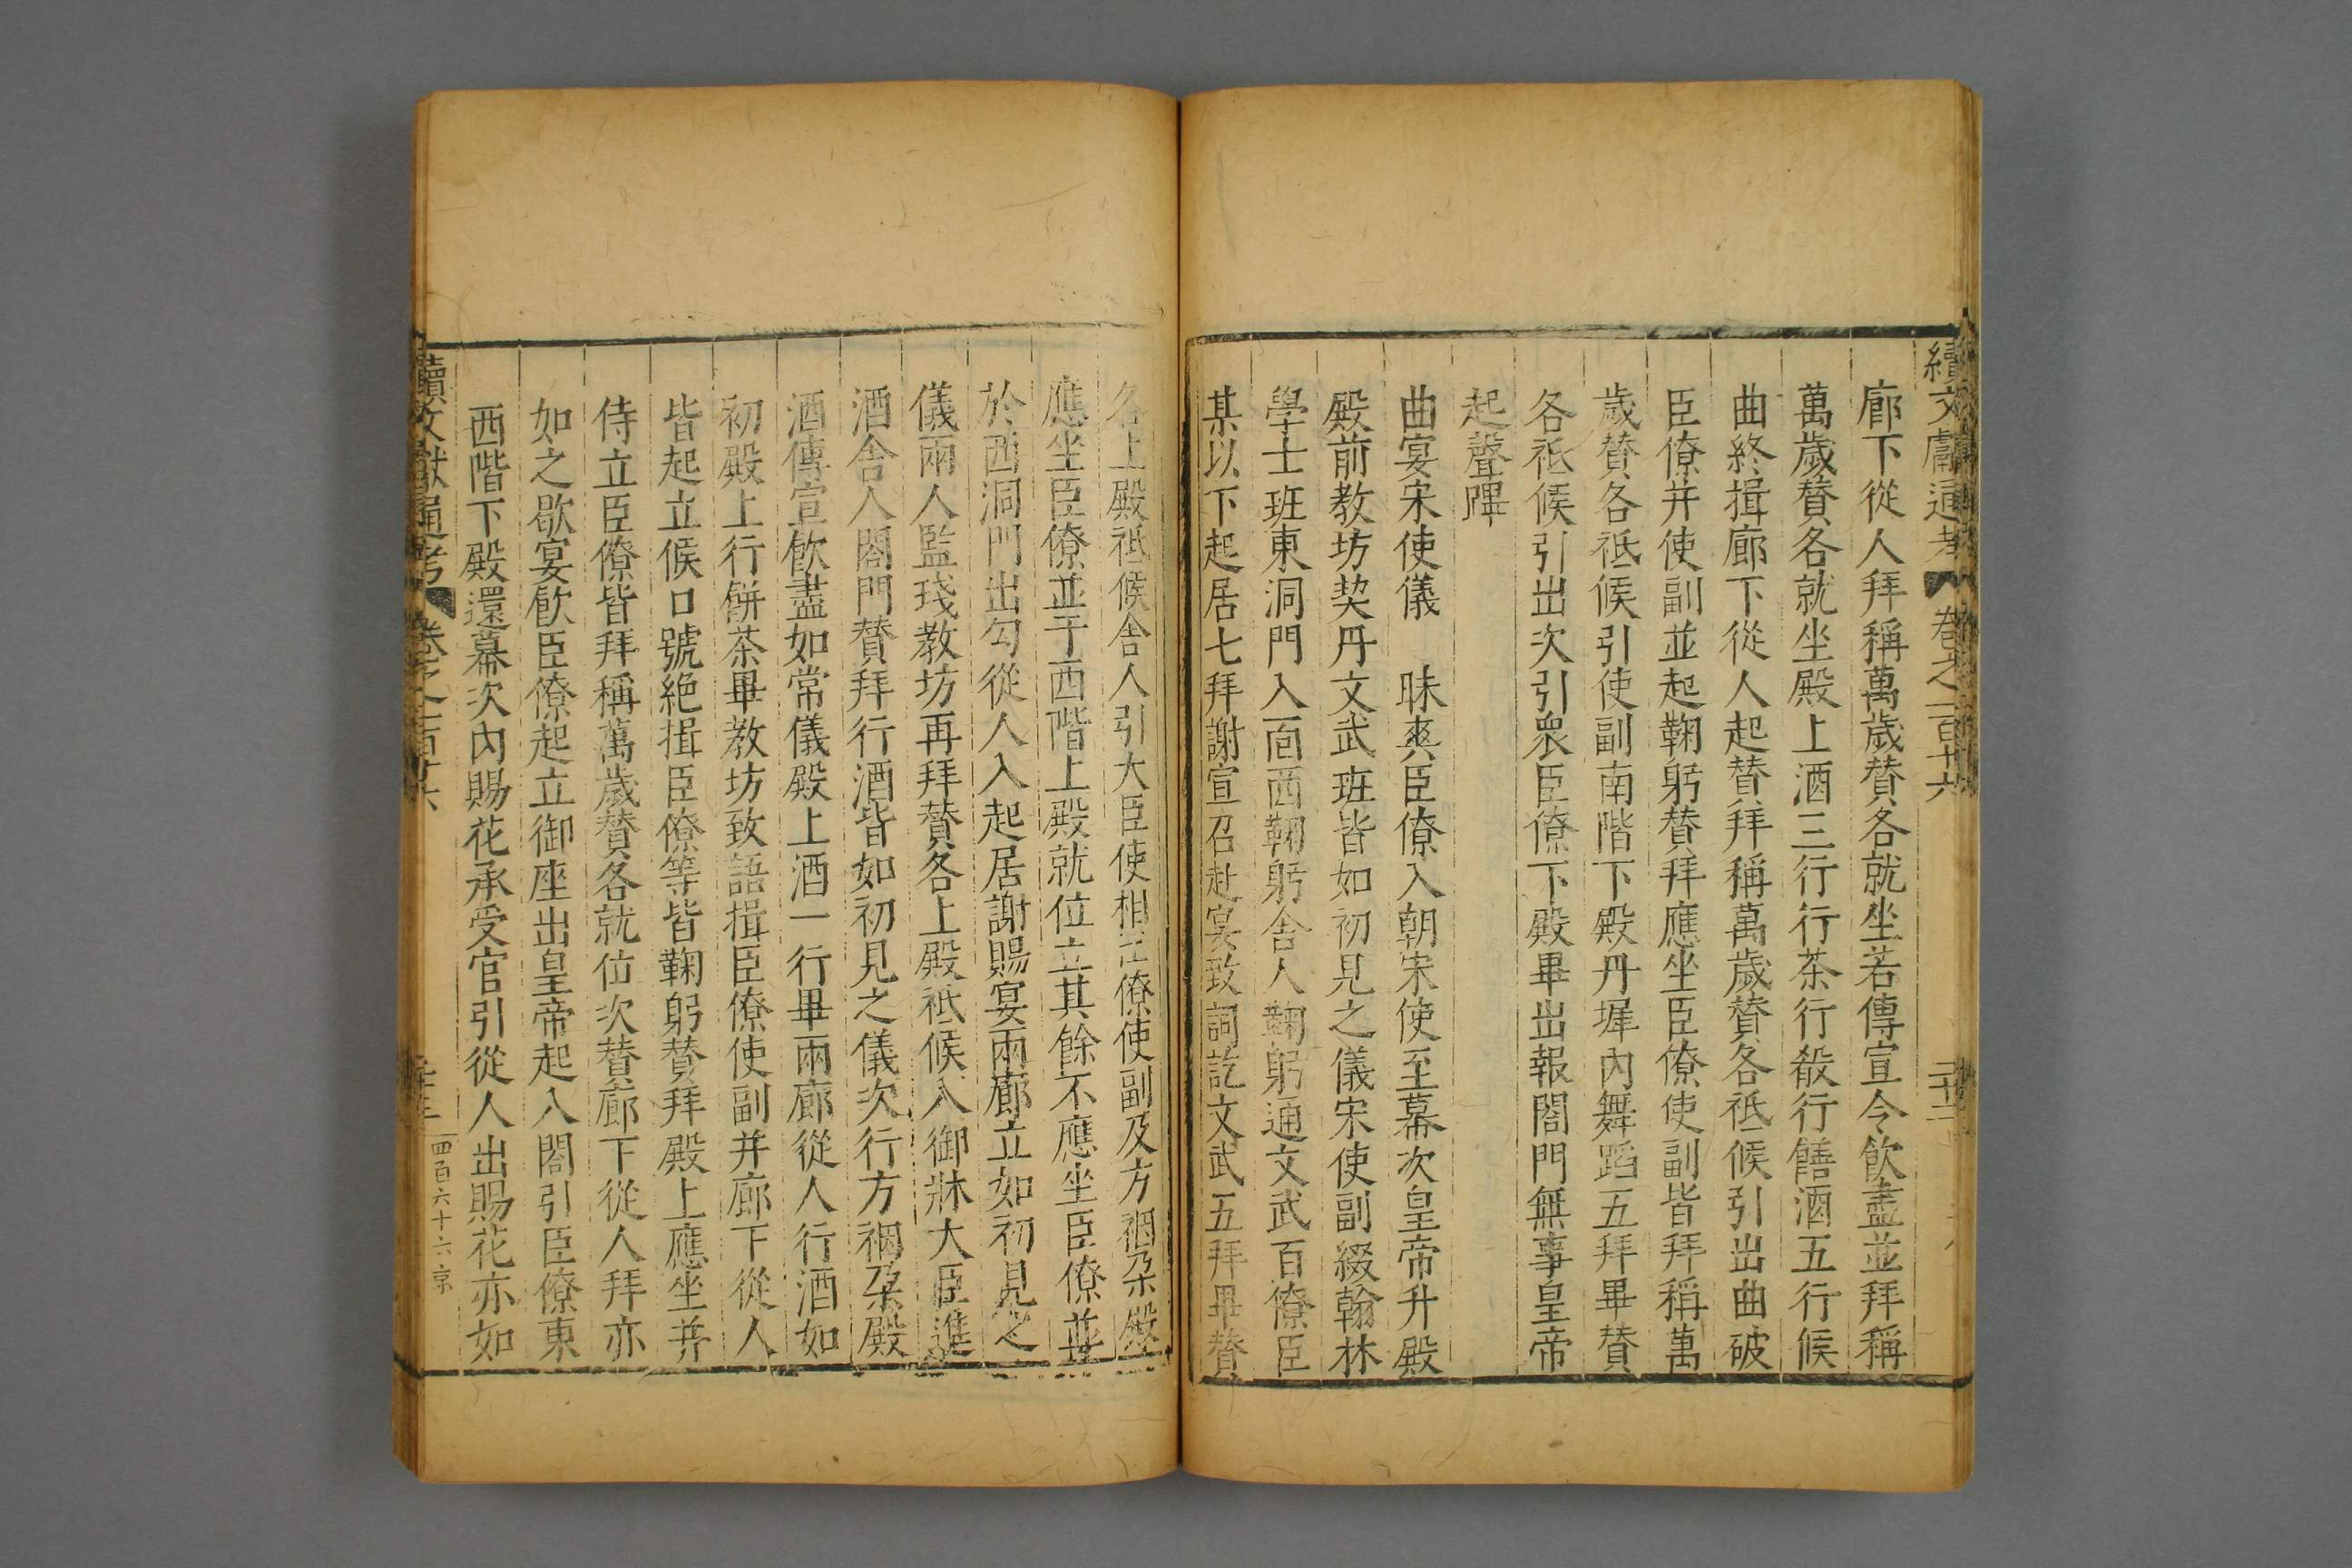 續文獻通考 卷之一百十六 二十二
廊下從人拜稱萬歲贊各就坐若傳宣令飲盡並拜稱
萬歲贊各就坐殿上酒三行行茶行殽行饍酒五行候
曲終揖廊下從人起贊拜稱萬歲贊各祗候引出曲破
臣僚并使副並起鞠躬贊拜應坐臣僚使副皆拜稱萬
歲贊各祗候引使副南階下殿丹墀內舞蹈五拜畢贊
各祗候引出次引眾臣僚下殿畢出報閤門無事皇帝
起聲蹕
曲宴宋使儀 昧爽臣僚入朝宋使至幕次皇帝升殿
殿前教坊契丹文武班皆如初見之儀宋使副綴翰林
學士班東洞門入面西鞠躬舍人鞠躬通文武百僚臣
某以下起居七拜謝宣召赴宴致詞訖文武五拜畢贊
各上殿祗候舍人引大臣使相臣僚使副及方裀朶殿
應坐臣僚並于西階上殿就位立其餘不應坐臣僚並
於西洞門出勾從人入起居謝賜宴兩廊立如初見之
儀兩人監琖教坊再拜贊各上殿祗候入御牀大臣進
酒舍人閤門贊拜行酒皆如初見之儀次行方裀朶殿
酒傳宣飲盡如常儀殿上酒一行畢兩廊從人行酒如
初殿上行餅茶畢教坊致語揖臣僚使副并廊下從人
皆起立候口號絕揖臣僚等皆鞠躬贊拜殿上應坐并
侍立臣僚皆拜稱萬歲贊各就位次贊廊下從人拜亦
如之歇宴飮臣僚起立御座出皇帝起入閤引臣僚東
西階下殿還幕次內賜花承受官引從人出賜花亦如
續文獻通考 卷之一百十六
四百六十六 京